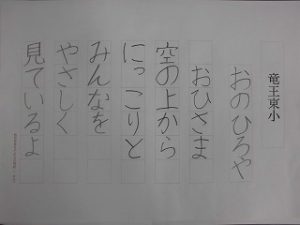 竜王東小
おのひろや
おひさま
空の上から
にっこりと
みんなを
やさしく
見ているよ